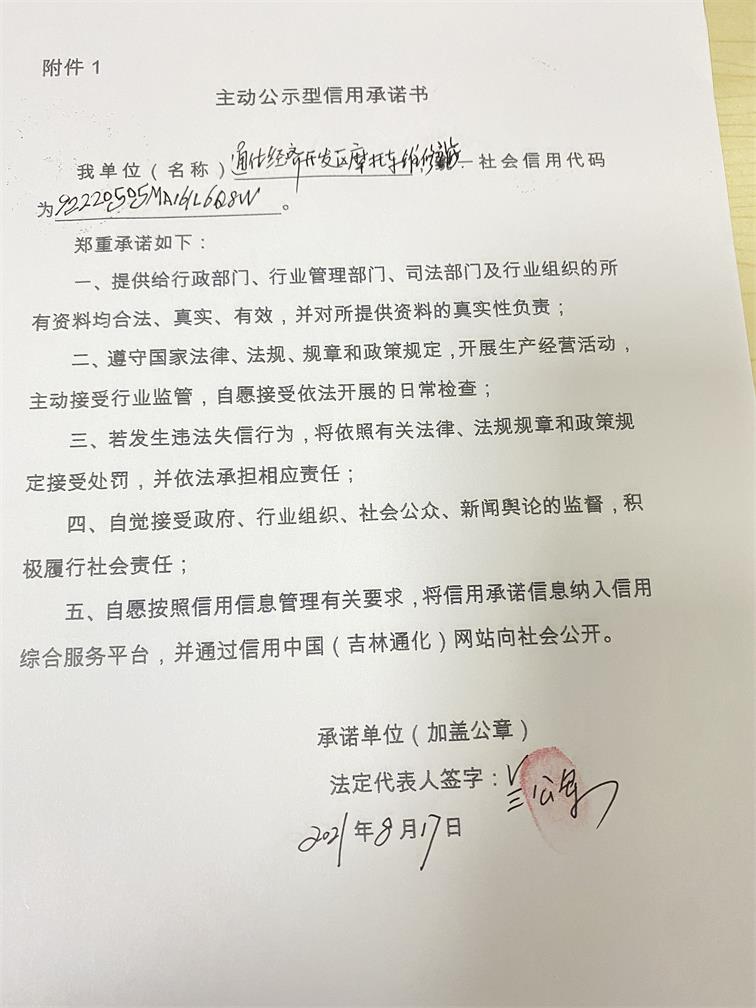 附件 1
主动公示型信用承诺书
我单位（名称）通化经济开发区摩托车维修 社会信用代码
为92220505MA14L6Q8W。
郑重承诺如下：
一、提供给行政部门、行业管理部门、司法部门及行业组织的所
有资料均合法、真实、有效，并对所提供资料的真实性负责；
二、遵守国家法律、法规、规章和政策规定，开展生产经营活动，
主动接受行业监管，自愿接受依法开展的日常检查；
三、若发生违法失信行为，将依照有关法律、法规规章和政策规
定接受处罚，并依法承担相应责任；
四、自觉接受政府、行业组织、社会公众、新闻舆论的监督，积
极履行社会责任；
五、自愿按照信用信息管理有关要求，将信用承诺信息纳入信用
综合服务平台，并通过信用中国（吉林通化）网站向社会公开。
承诺单位（加盖公章）
法定代表人签字：
2021年8月17日